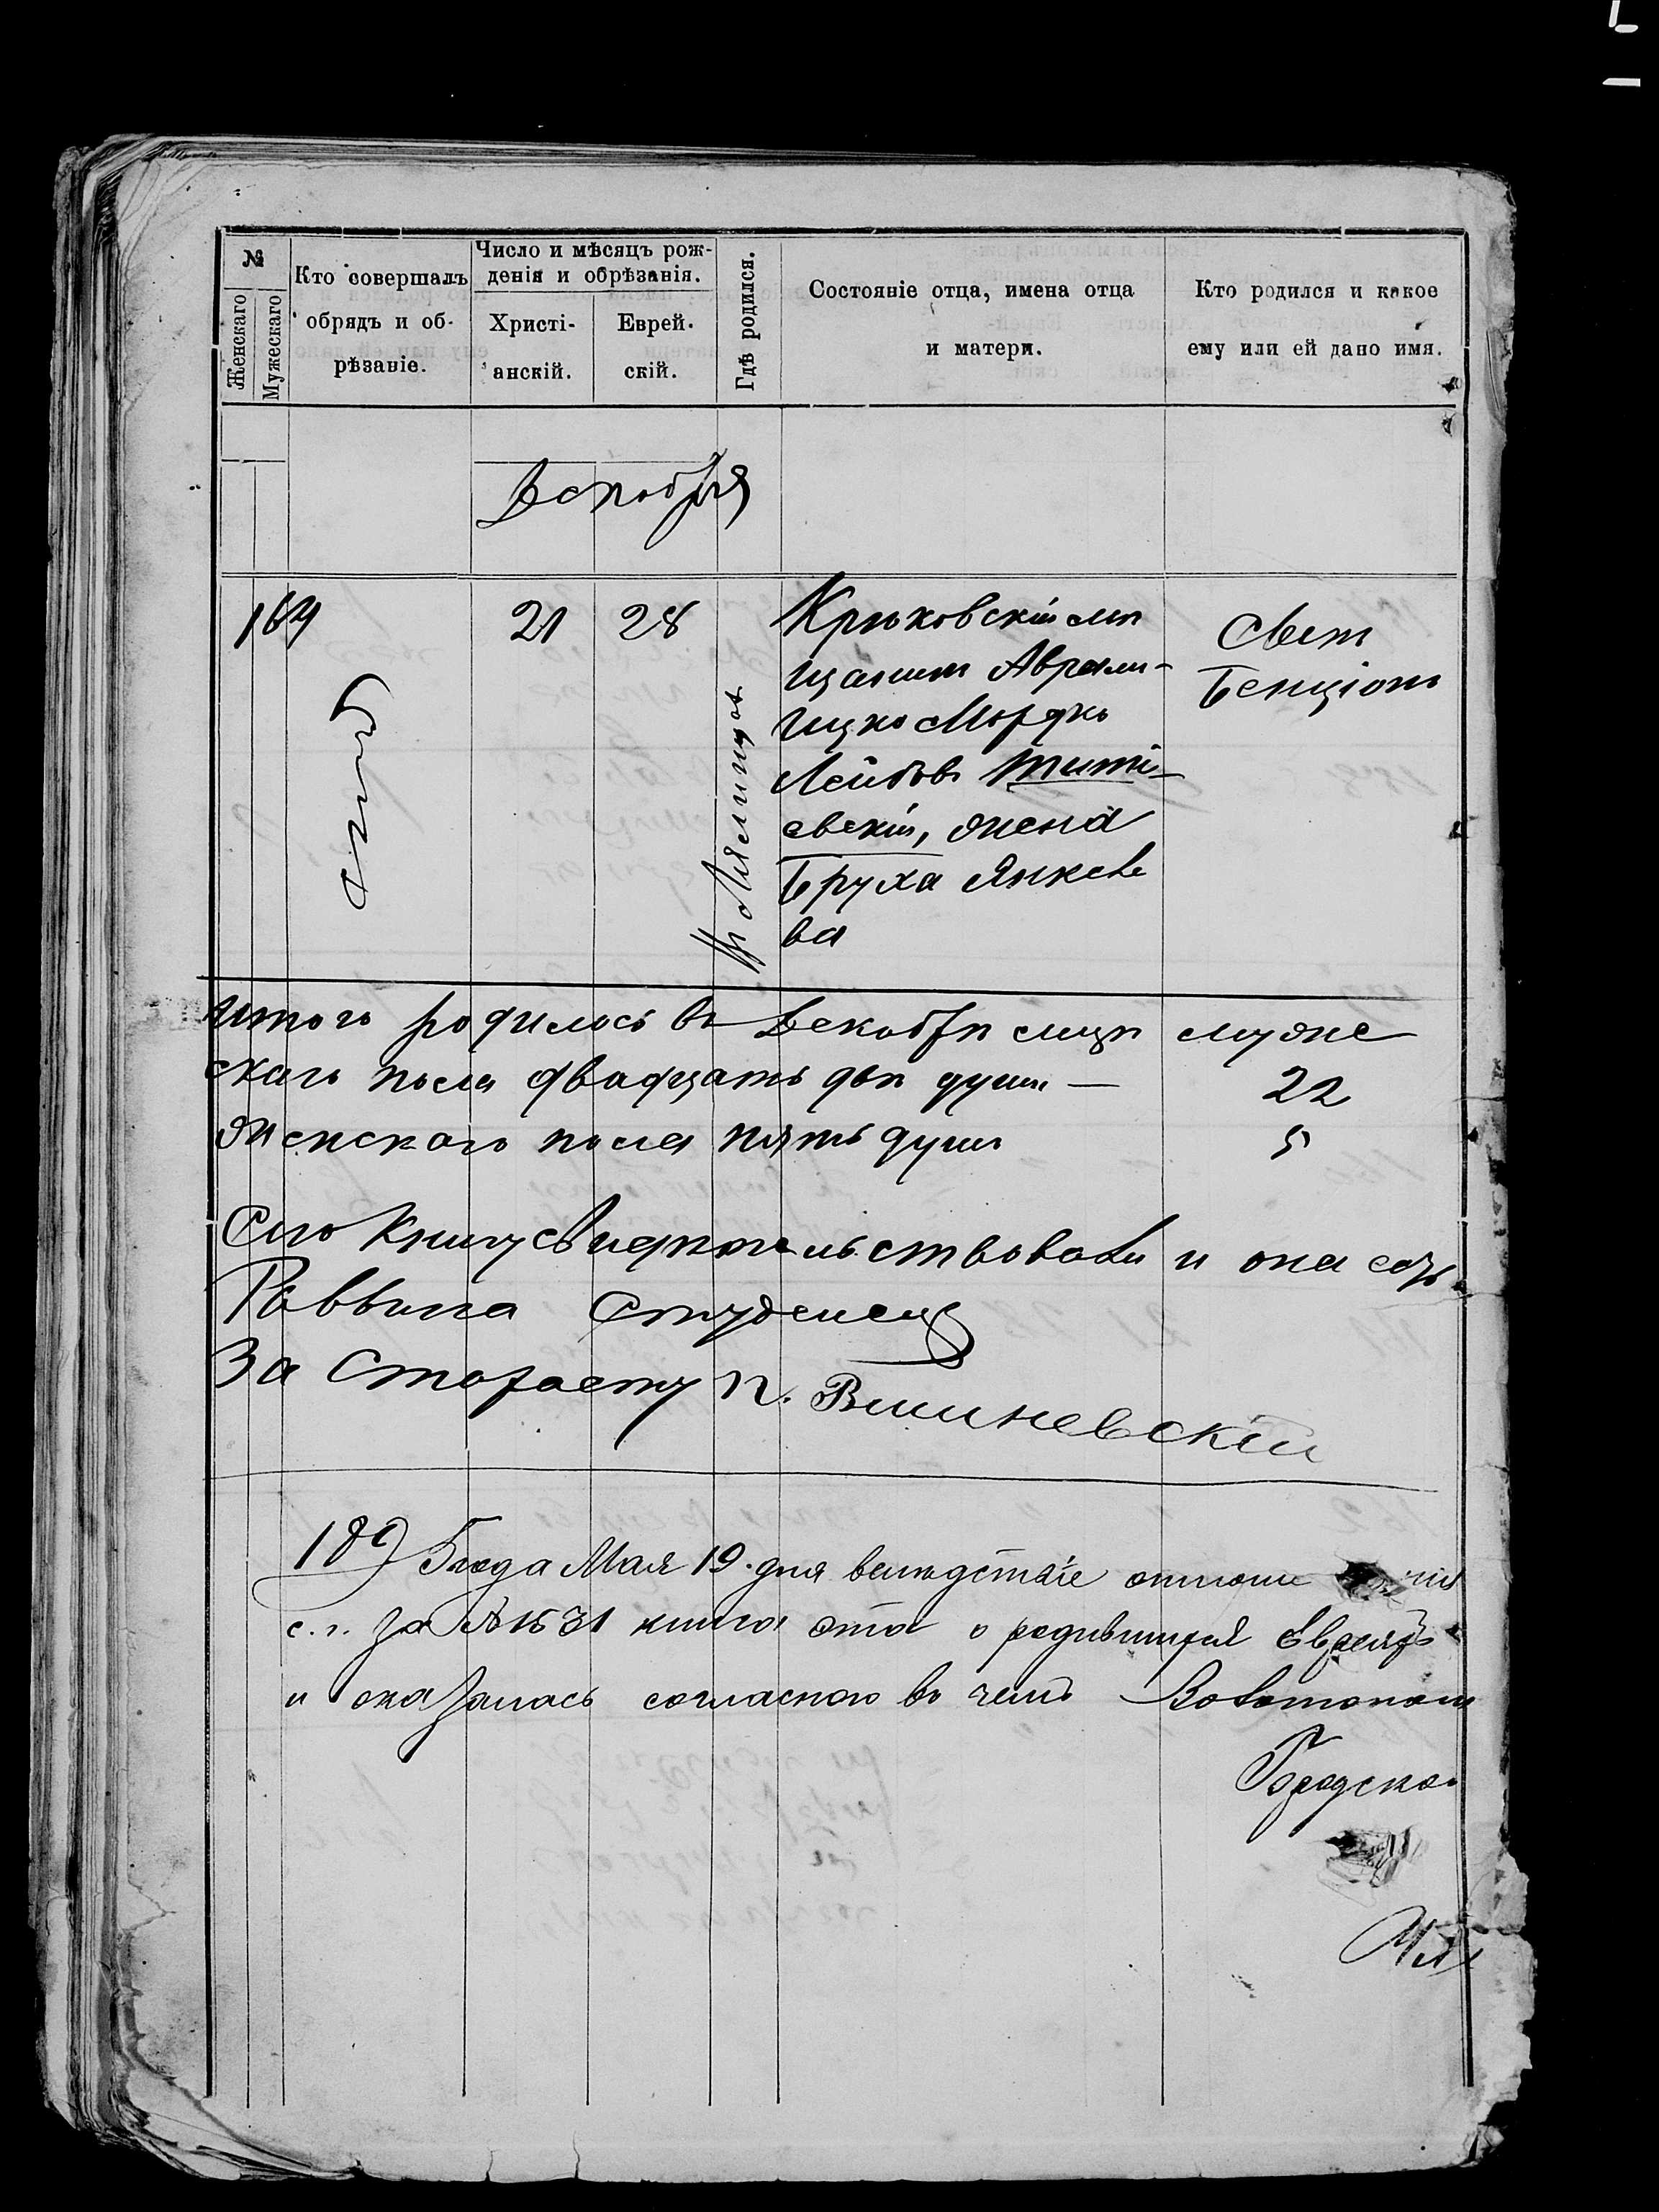 №
Женскаго
Мужескаго
Кто совершалъ
обрядъ и об-
рѣзаніе.
Число и мѣсяцъ рож-
денія и обрѣзанія.
Христі-
анскій.
Еврей-
скій.
Гдѣ родился.
Состояніе отца, имена отца
и матери.
Кто родился и какое
ему или ей дано имя.
Декабря
164
21
28
Крюковскій мѣ
щанинъ Аврам-
Ицко Мордко
Лейбовъ
евскій, жена
Бруха Янкеле
ва
Бенціонъ
Итого родилось въ Декабрѣ мцѣ муже
скаго пола двадцать двѣ души — 22
Женскаго пола пять душъ 5
Сію книгу свидѣтельствовали и она
Раввина Студенец
За Старосту П. Вишневскій
года Мая 19 дня вслѣдствіе отноше
с. г. за № 1531 книга эта о родившихся Евреяхъ
и оказалась согласною въ чемъ
Городско